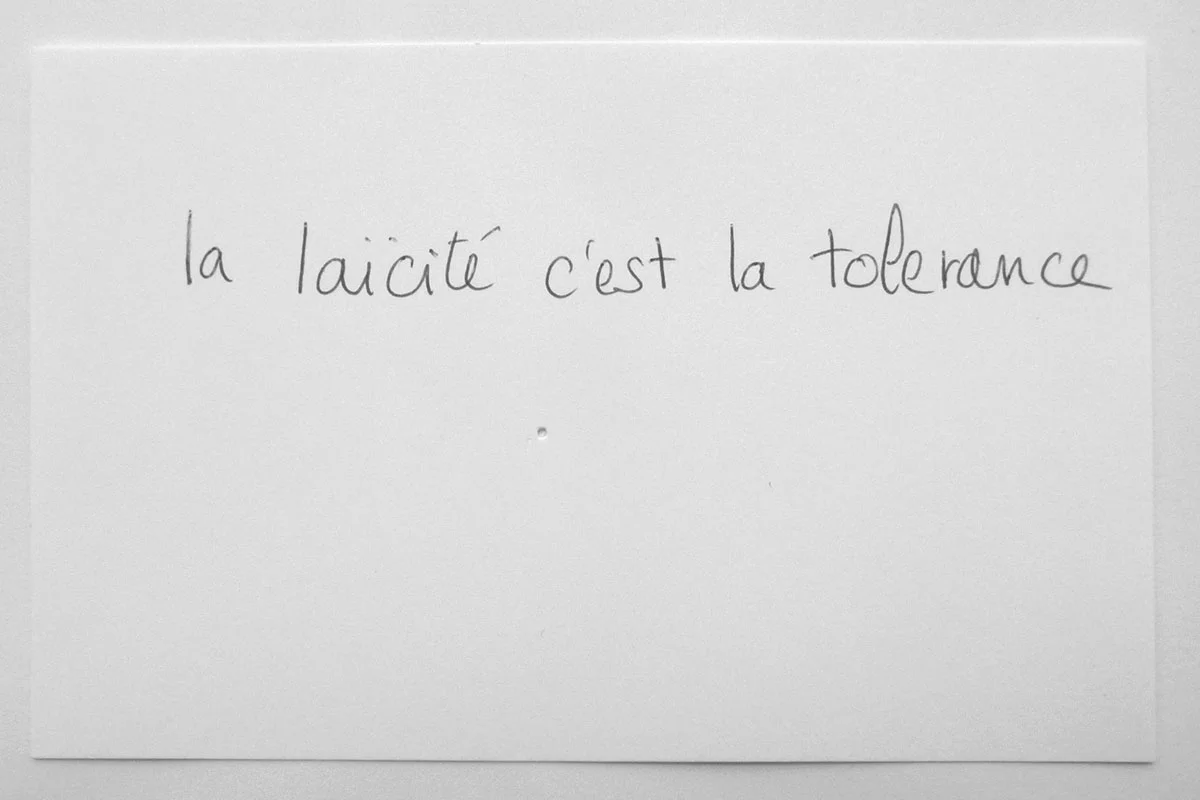 la laïcité c'est la tolerance